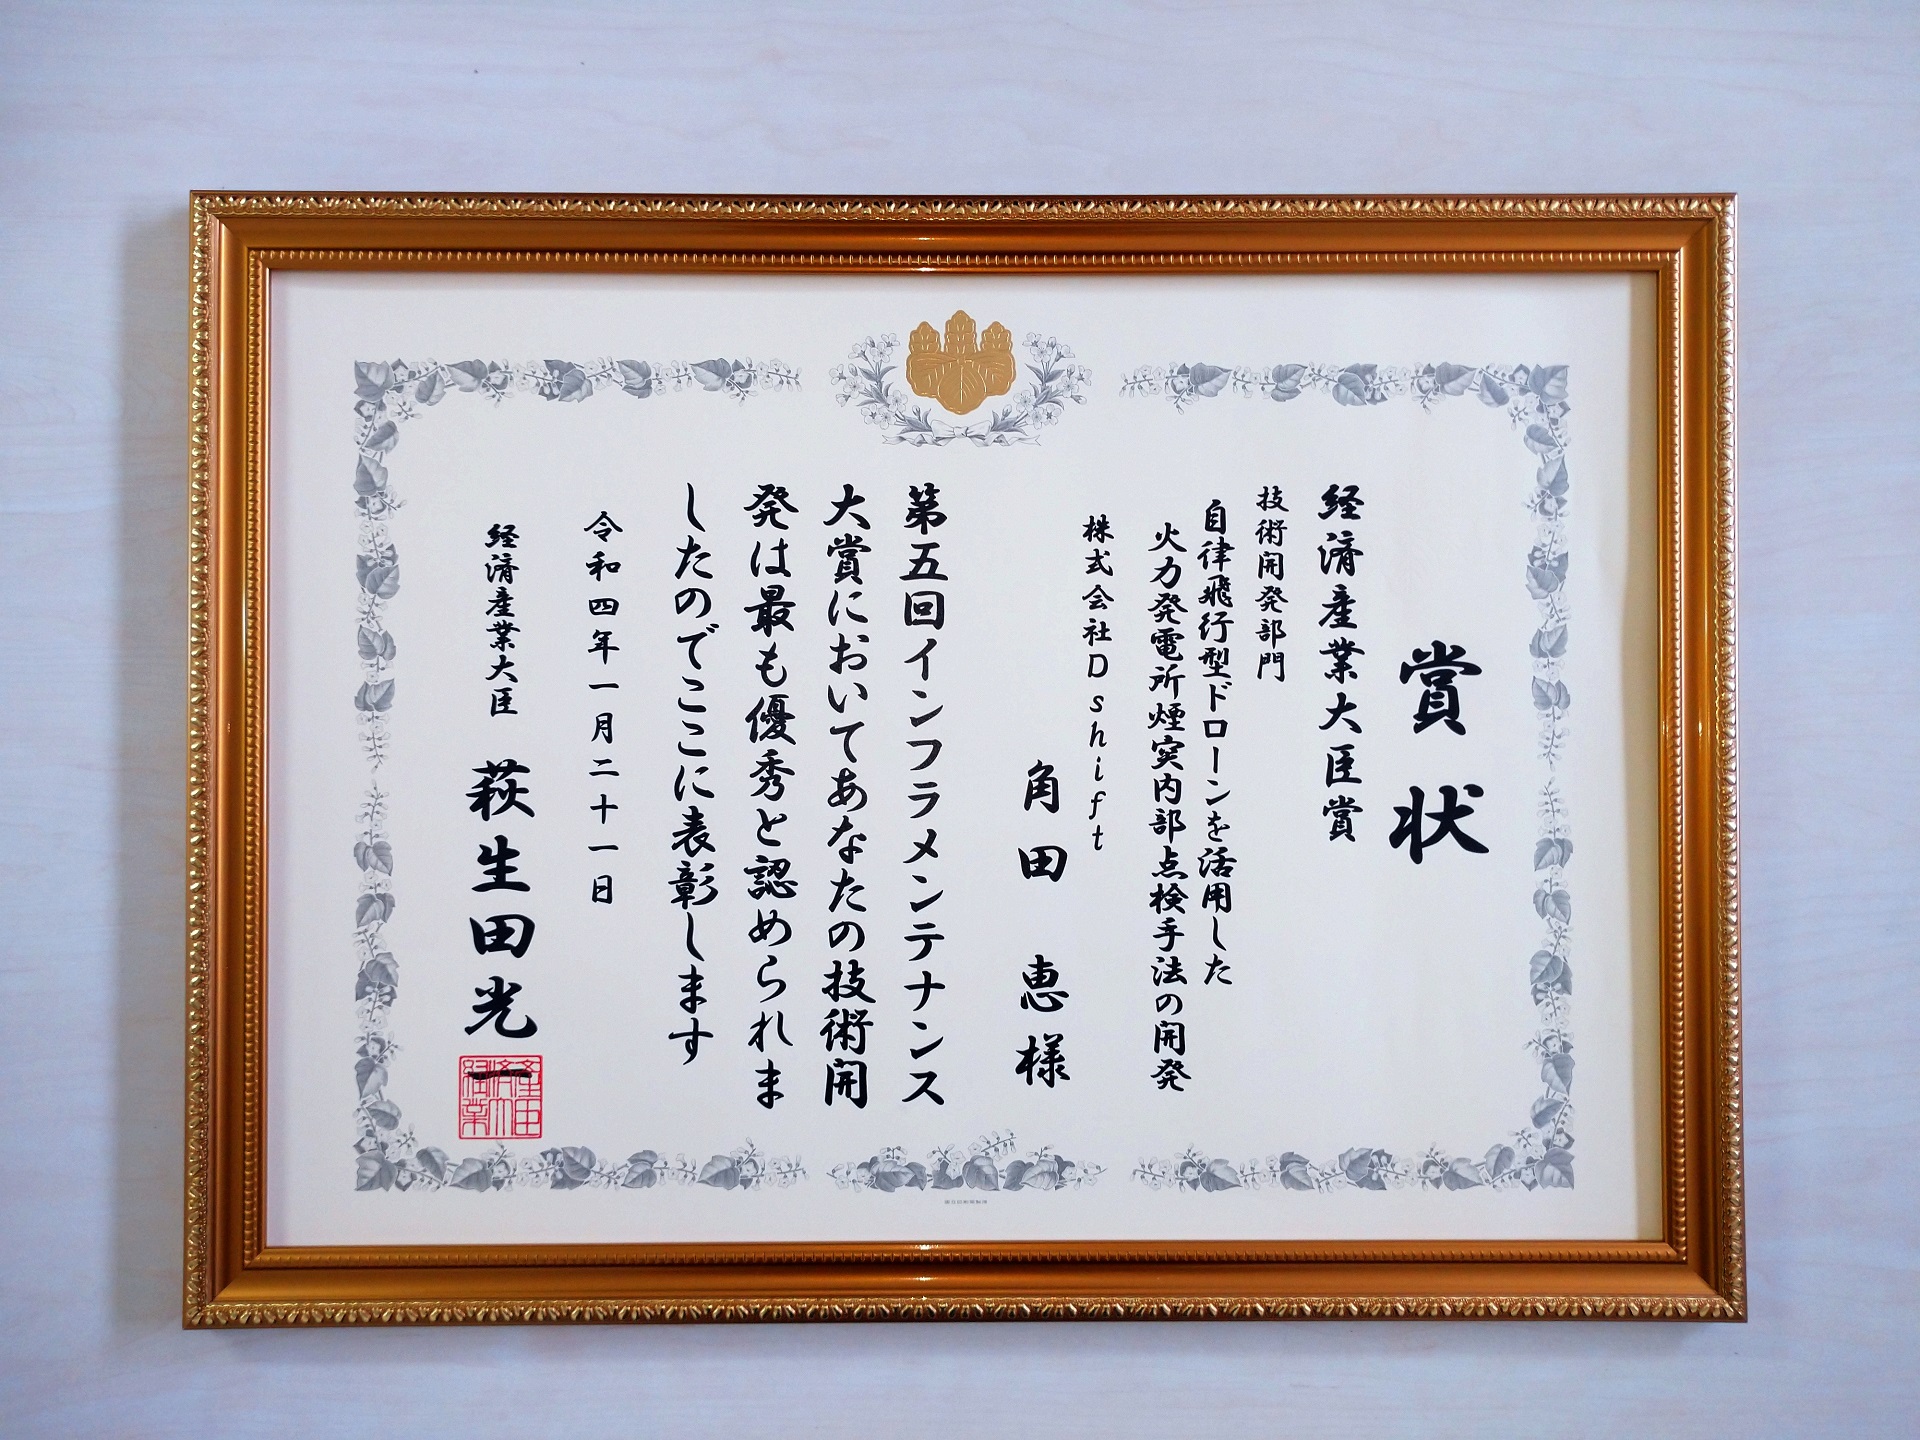 賞状
経済産業大臣賞
技術開発部門
自律飛行型ドローンを活用した
火力発電所煙突内部点検手法の開発
株式会社Dshift
角田 恵様
第五回インフラメンテナンス
大賞においてあなたの技術開
発は最も優秀と認められま
したのでここに表彰します
令和四年一月二十一日
経済産業大臣 萩生田光一